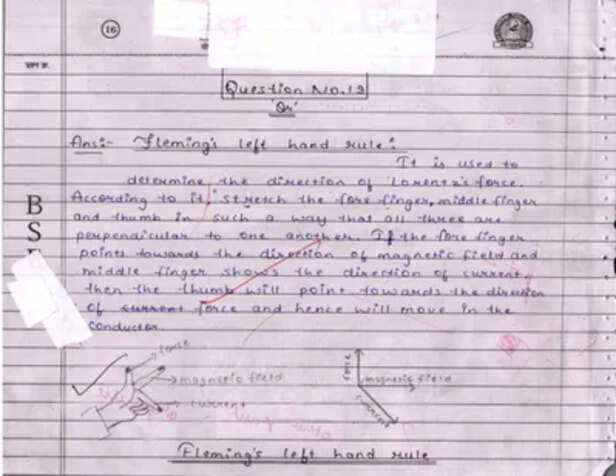 16
प्रश्न क्र.
Question No. 19
'Or'
Ans:- Fleming's left hand rule:
It is used to
determine the direction of Lorentz's force.
According to it, "stretch the fore finger, middle finger
and thumb in such a way that all three are
perpendicular to one another. If the fore finger
points towards the direction of magnetic field and
middle finger shows the direction of current,
then the thumb will point towards the direction
of current force and hence will move in the
conductor.
B
S
force
magnetic field
current
force
magnetic field
current
Fleming's left hand rule